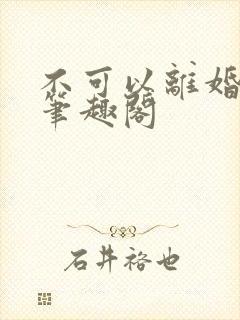 不可以離婚
筆趣閣
石井裕也